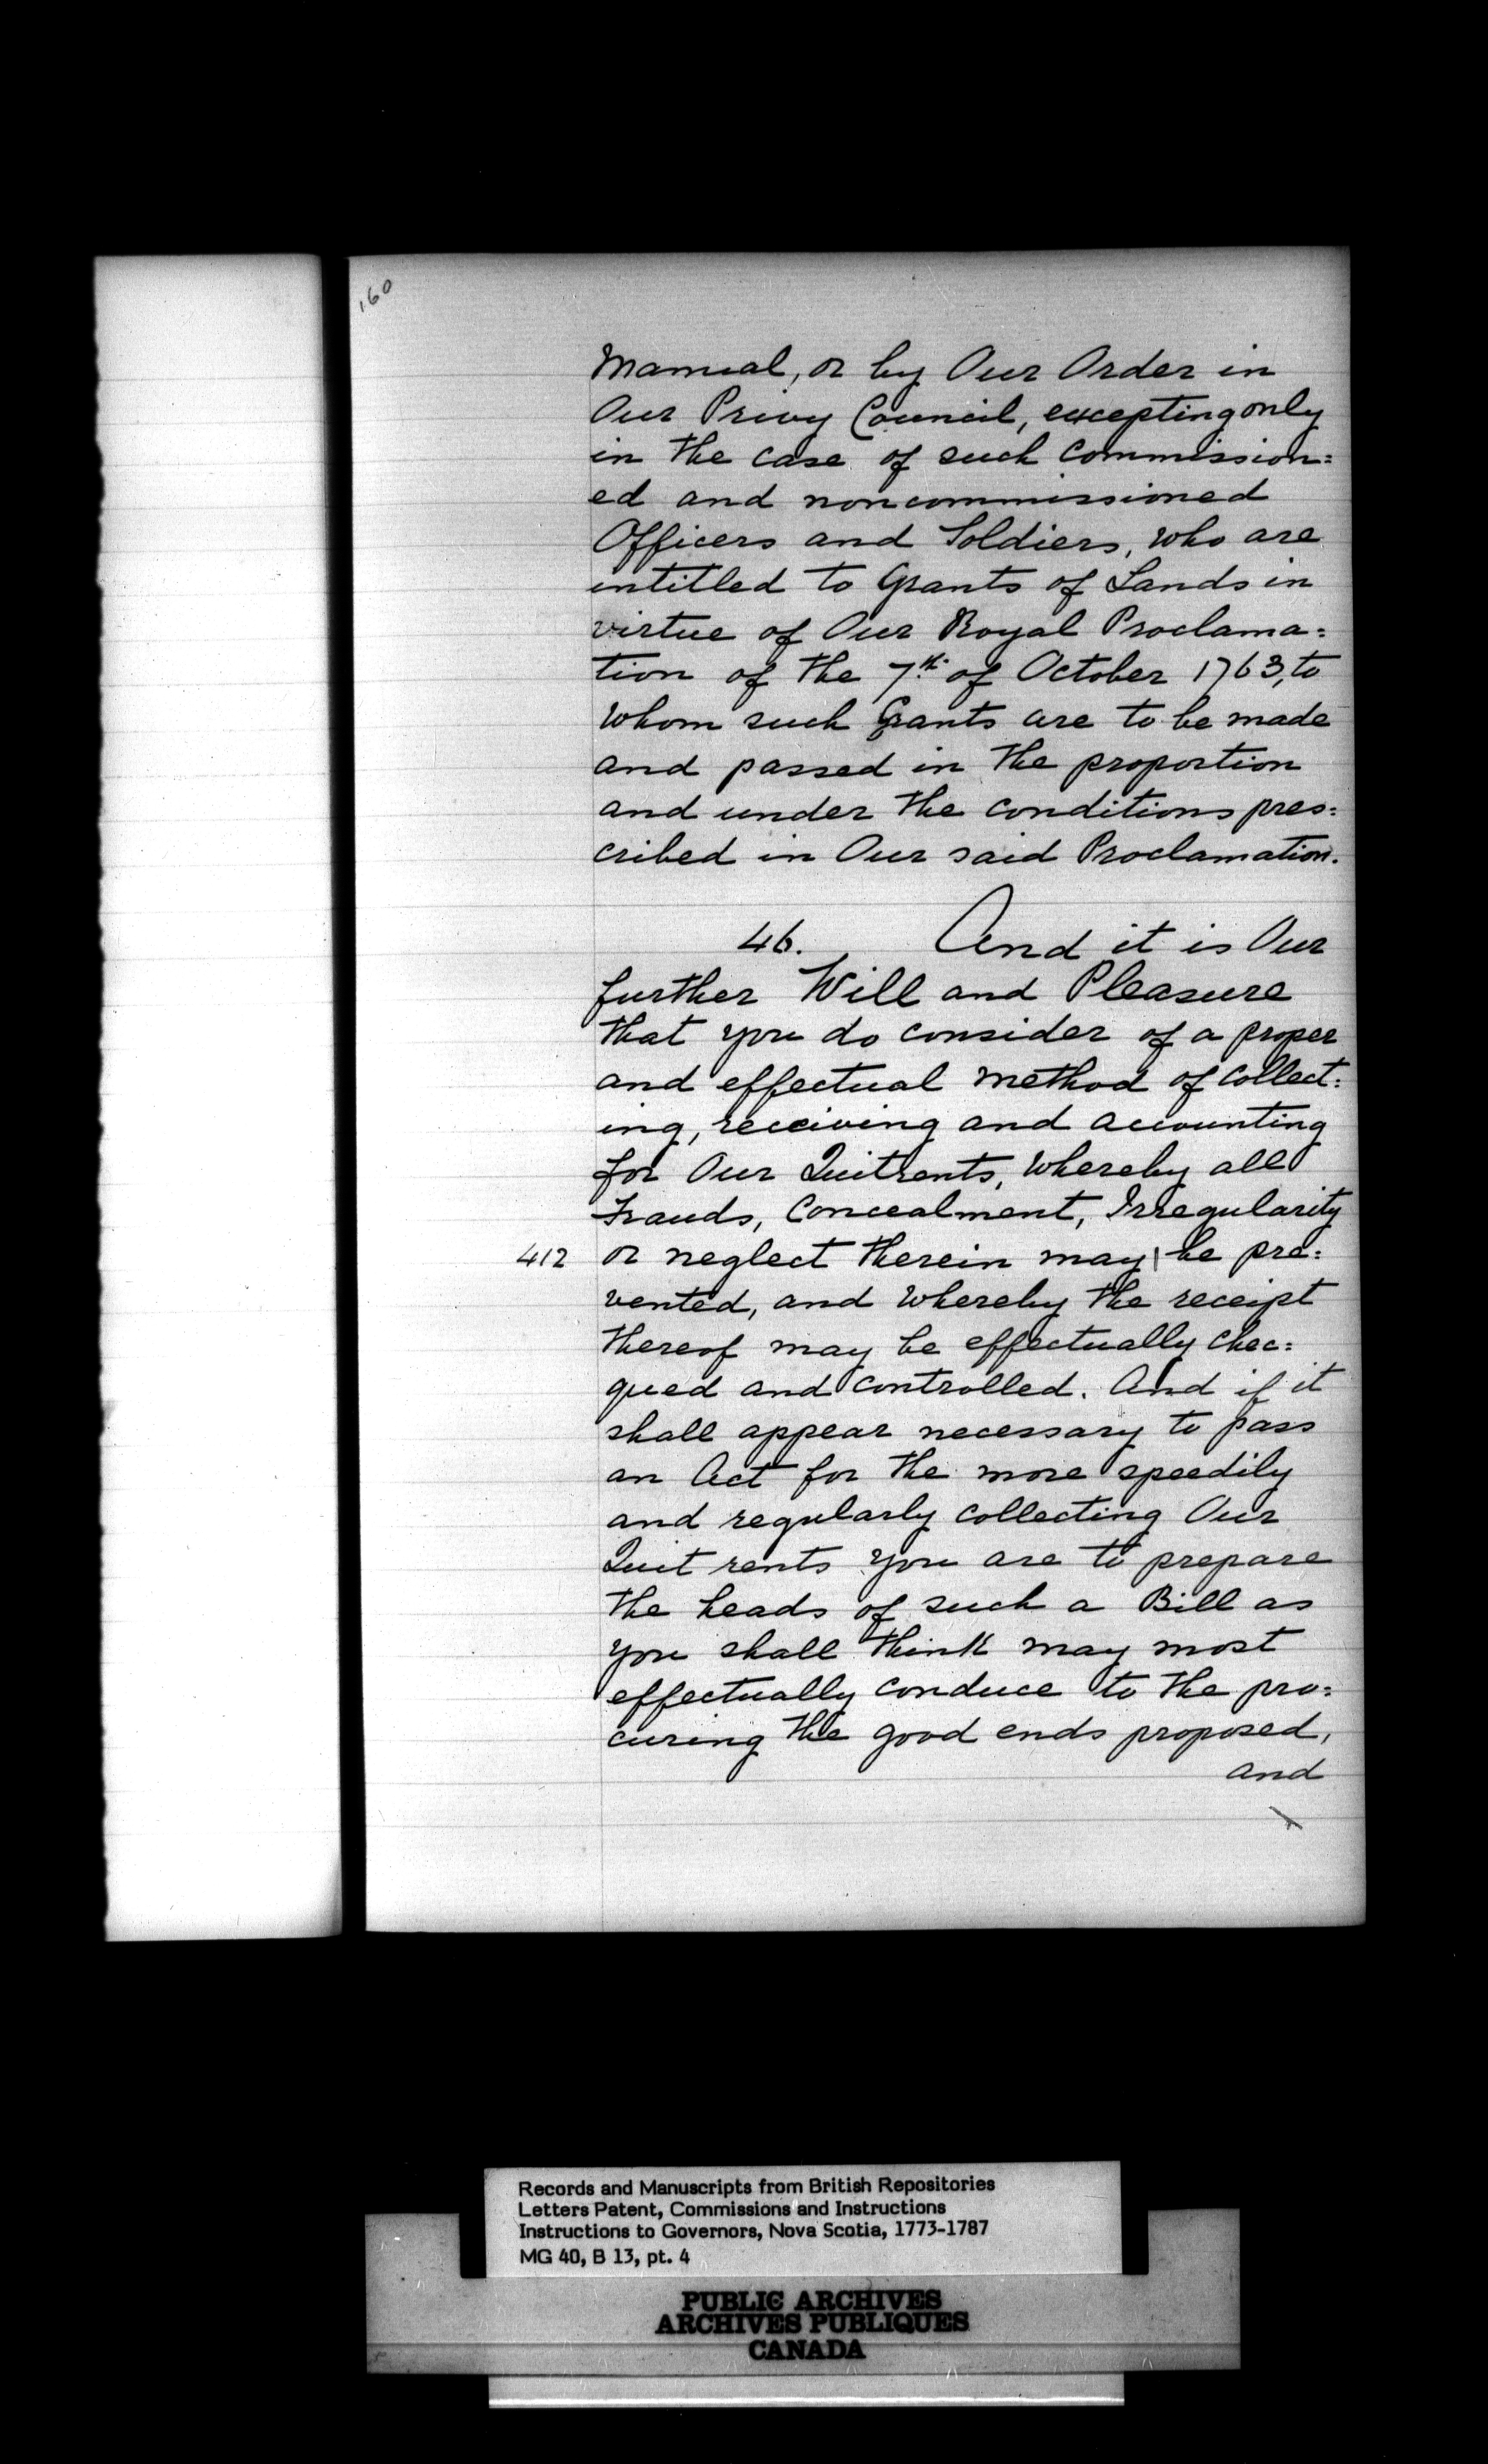 160
Manual, or by Our Order in
Our Privy Council, excepting only
in the case of such Commission=
ed and noncommissioned
Officers and Soldiers, who are
intitled to Grants of Lands in
virtue of Our Royal Proclama=
tion of the 7th. of October 1763, to
whom such Grants are to be made
and passed in the proportion
and under the conditions pres=
cribed in Our said Proclamation.
46. And it is Our
further Will and Pleasure
that you do consider of a proper
and effectual method of collect=
ing, receiving and accounting
for Our Quitrents, whereby all
Frauds, Concealment, Irregularity
412 or neglect therein may | be pre=
vented, and whereby the receipt
thereof may be effectually chec=
qued and controlled. And if it
shall appear necessary to pass
an Act for the more speedily
and regularly collecting Our
Quit rents you are to prepare
the heads of such a Bill as
you shall think may most
effectually conduce to the pro=
curing the good ends proposed,
and
Records and Manuscripts from British Repositories
Letters Patent, Commissions and Instructions
Instructions to Governors, Nova Scotia, 1773-1787
MG 40, B 13, pt. 4
PUBLIC ARCHIVES
ARCHIVES PUBLIQUES
CANADA